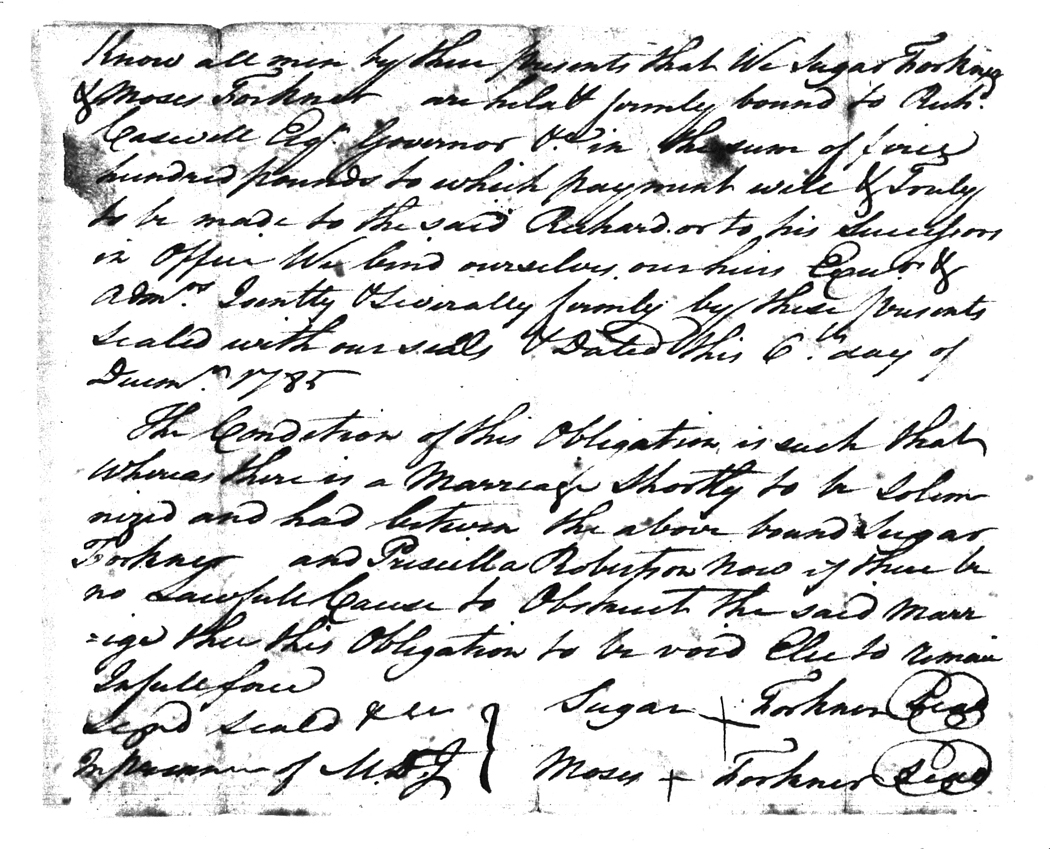 Know all men by these presents that We Sugar Forkner
& Moses Forkner are held & firmly bound to Richd
Caswell Esqr Governor &c in the sum of five
hundred pounds to which payment well & Truly
to be made to the said Richard or to his Successors
in Office We bind ourselves our heirs Exeurs &
Admrs Jointly & Severally firmly by these presents
Sealed with our seals & Dated this 6th day of
Decemr 1785
The Condition of this Obligation is such that
Whereas there is a Marreage Shortly to be Solem
nized and had between the above bound Sugar
Forkner and Priscilla Robertson Now if there be
no Lawfull Cause to Obstruct the said Marr
=ige then this Obligation to be void Else to remain
In full force
Signd Seald &
In presence of
Sugar + Forkner Seal
Moses + Forkner Seal